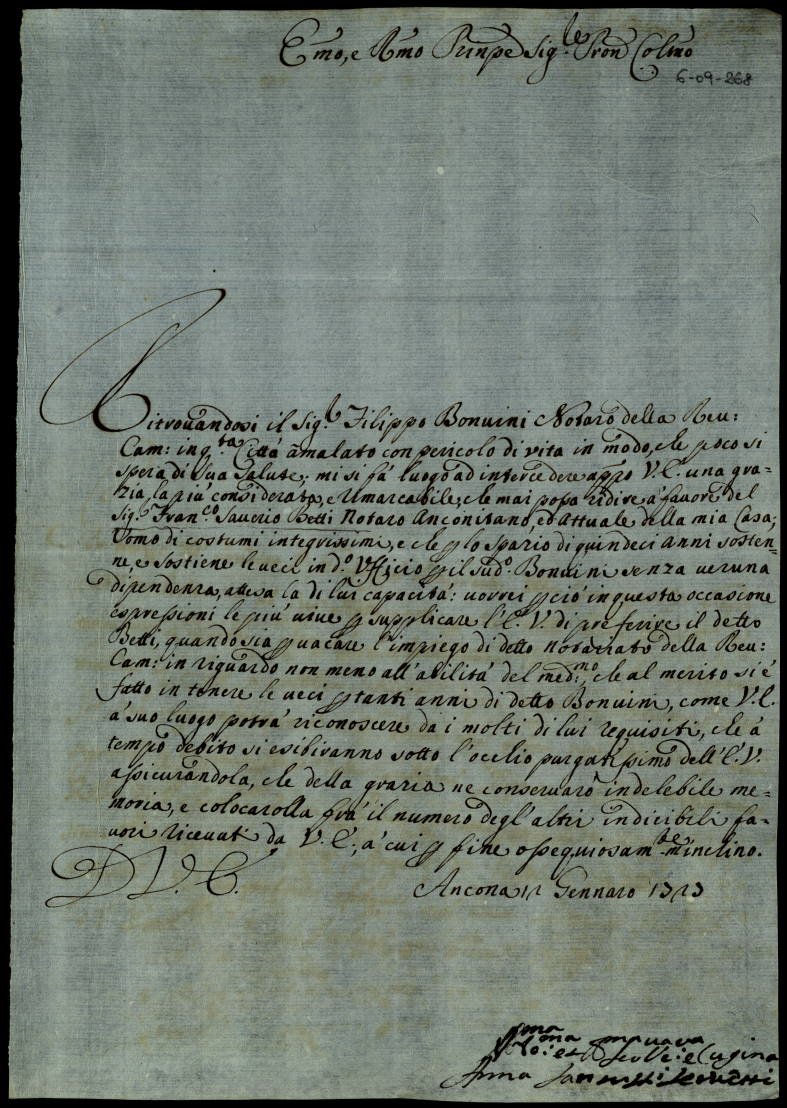 Emo, e Rmo Prinpe Sig.re Pron Colmo
6-09-268
Ritrouandosi il Sig.r Filippo Bonuini Notaro della Reu:
Cam: in q.ta Città amalato con pericolo di vita in modo, che poco si
spera di Sua Salute; mi si fà luogo ad intercedere appo V. E. una gra-
zia, la più considerata, e rimarcabile, che mai possa ridire à fauore del
Sig. Fran.co Sauerio Betti Notaro Anconitano, ed Attuale della mia Casa,
Uomo di costumi integrissimi, e che p lo spazio di quindeci anni sosten=
ne, e sostiene le ueci in d.o Vfficio p il sud.o Bonuini senza ueruna
dipendenza, attesa la di lui capacità: uorrei p ciò in questa occasione
espressioni le più uiue p supplicare l'E. V. di preferire il detto
Betti, quando sia p uacare l'impiego di detto notariato della Reu:
Cam: in riguardo non meno all'abilità del med:mo, che al merito si è
fatto in tenere le ueci p tanti anni di detto Bonuini, come V. E.
à suo luogo potrà riconoscere da i molti di lui requisiti, che à
tempo debito si esibiranno sotto l'occhio purgatissimo dell'E. V.
assicurandola, che della grazia ne conseruarò indelebile me=
moria, e colocarolla frà il numero degl'altri indicibili fa-
uori riceuuti da V. E., à cui p fine ossequiosam.te m'inchino.
D V. E.
Ancona 12 Gennaro 1723
Anna
e Cugina